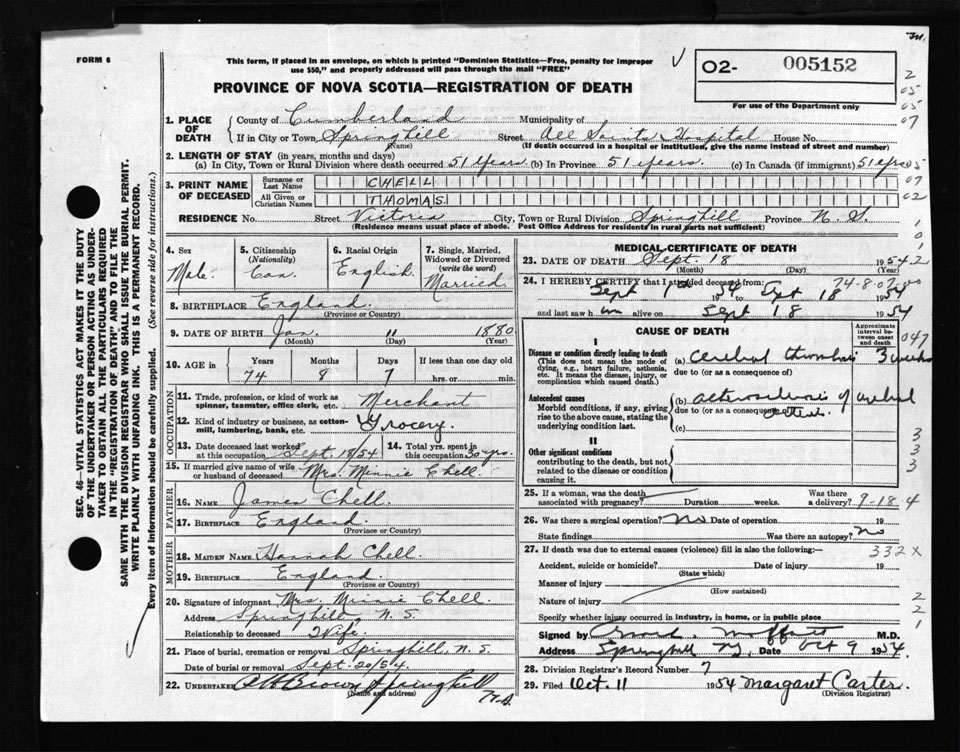 FORM 6
This form, if placed in an envelope, on which is printed "Dominion Statistics—Free, penalty for improper
use $50," and properly addressed will pass through the mail "FREE"
O2- 005152
For use of the Department only
PROVINCE OF NOVA SCOTIA—REGISTRATION OF DEATH
1. PLACE OF DEATH
County of Cumberland Municipality of
If in City or Town Springhill Street All Saints Hospital House No.
(Name) (If death occurred in a hospital or institution, give the name instead of street and number)
2. LENGTH OF STAY (in years, months and days)
(a) In City, Town or Rural Division where death occurred 51 Years (b) In Province 51 years. (c) In Canada (if immigrant) 51 yrs
3. PRINT NAME OF DECEASED
Surname or Last Name CHELL
All Given or Christian Names THOMAS
RESIDENCE No. Street Victoria City, Town or Rural Division Springhill Province N.S.
(Residence means usual place of abode. Post Office Address for residents in rural parts not sufficient)
4. Sex Male
5. Citizenship (Nationality) Can.
6. Racial Origin English
7. Single, Married, Widowed or Divorced (write the word) Married
8. BIRTHPLACE England
(Province or Country)
9. DATE OF BIRTH Jan. 11 1880
(Month) (Day) (Year)
10. AGE in Years 74 Months 8 Days 7 If less than one day old hrs. or min.
OCCUPATION
11. Trade, profession, or kind of work as spinner, teamster, office clerk, etc. Merchant
12. Kind of industry or business, as cotton-mill, lumbering, bank, etc. Grocery.
13. Date deceased last worked at this occupation Sept 18/54
14. Total yrs. spent in this occupation 30 yrs.
15. If married give name of wife or husband of deceased Mrs. Minnie Chell.
FATHER
16. NAME James Chell
17. BIRTHPLACE England.
(Province or Country)
MOTHER
18. MAIDEN NAME Hannah Chell.
19. BIRTHPLACE England.
(Province or Country)
20. Signature of informant Mrs. Minnie Chell.
Address Springhill, N.S.
Relationship to deceased Wife.
21. Place of burial, cremation or removal Springhill, N.S.
Date of burial or removal Sept. 20/54.
22. UNDERTAKER Brown Springhill N.S.
(Name and address)
MEDICAL CERTIFICATE OF DEATH
23. DATE OF DEATH Sept. 18 1954
(Month) (Day) (Year)
24. I HEREBY CERTIFY that I attended deceased from:
Sept 1st 1954 to Sept 18 1954
and last saw him alive on Sept 18 1954
CAUSE OF DEATH
Approximate interval between onset and death
I
Disease or condition directly leading to death
(This does not mean the mode of dying, e.g., heart failure, asthenia, etc. It means the disease, injury, or complication which caused death.)
(a) cerebral thrombosis 3 weeks
due to (or as a consequence of)
Antecedent causes
Morbid conditions, if any, giving rise to the above cause, stating the underlying condition last.
(b) arteriosclerosis of cerebral
due to (or as a consequence of)
(c)
II
Other significant conditions
contributing to the death, but not related to the disease or condition causing it.
25. If a woman, was the death associated with pregnancy? Duration weeks. Was there a delivery?
9-18-4
26. Was there a surgical operation? No Date of operation 19
State findings Was there an autopsy? No
27. If death was due to external causes (violence) fill in also the following:—
332X
Accident, suicide or homicide? Date of injury 19
(State which)
Manner of injury
(How sustained)
Nature of injury
Specify whether injury occurred in industry, in home, or in public place
Signed by Moffatt M.D.
Address Springhill N.S. Date Oct 9 1954.
28. Division Registrar's Record Number 7
29. Filed Oct. 11 1954 Margaret Carter.
(Division Registrar)
SEC. 46—VITAL STATISTICS ACT MAKES IT THE DUTY
OF THE UNDERTAKER OR PERSON ACTING AS UNDER-
TAKER TO OBTAIN ALL THE PARTICULARS REQUIRED
IN THE "REGISTRATION OF DEATH" AND TO FILE THE
SAME WITH THE DIVISION REGISTRAR WHO SHALL ISSUE THE BURIAL PERMIT.
WRITE PLAINLY WITH UNFADING INK. THIS IS A PERMANENT RECORD.
Every item of information should be carefully supplied. (See reverse side for instructions.)